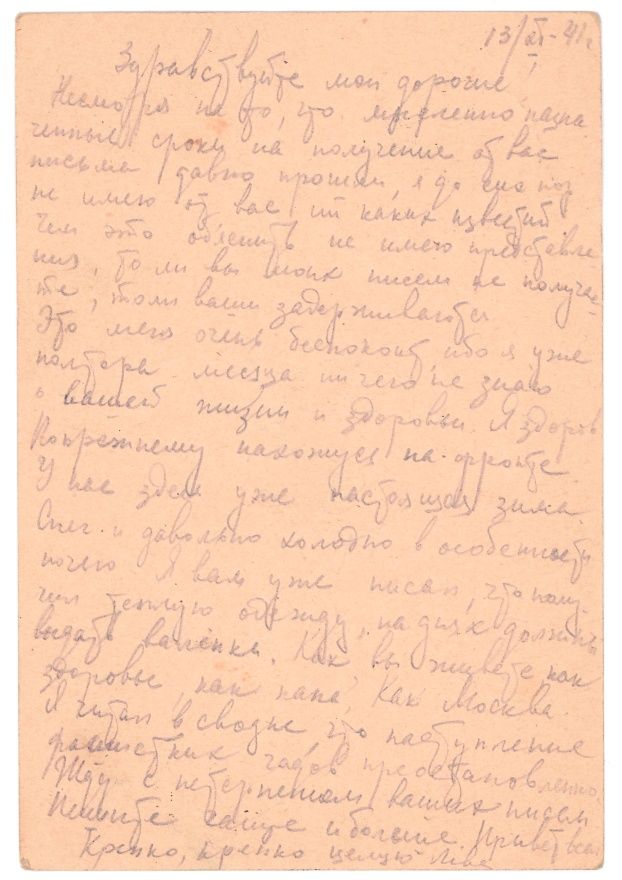 13/XI-41г
Здравствуйте мои дорогие!
Несмотря на то, что мысленно назна
ченные сроки на получение от вас
письма давно прошли, я до сих пор
не имею от вас ни каких известий
Чем это объяснить не имею представле
ния, то ли вы моих писем не получае-
те, то ли ваши задерживаются
Это меня очень беспокоит, ибо я уже
полтора месяца ничего не знаю
о вашей жизни и здоровьи. Я здоров
По прежнему нахожусь на фронте.
У нас здесь уже настоящая зима.
Снег и давольно холодно в особенности
ночью Я вам уже писал, что полу-
чил теплую одежду, на днях должны
выдать валенки. Как вы живете, как
здоровье, как папа, Как Москва.
Я читал в сводке что наступление
фашистких гадов преостановленно.
Жду с нетерпением ваших писем
Пишите чаще и больше. Привет всем
Крепко, крепко целую